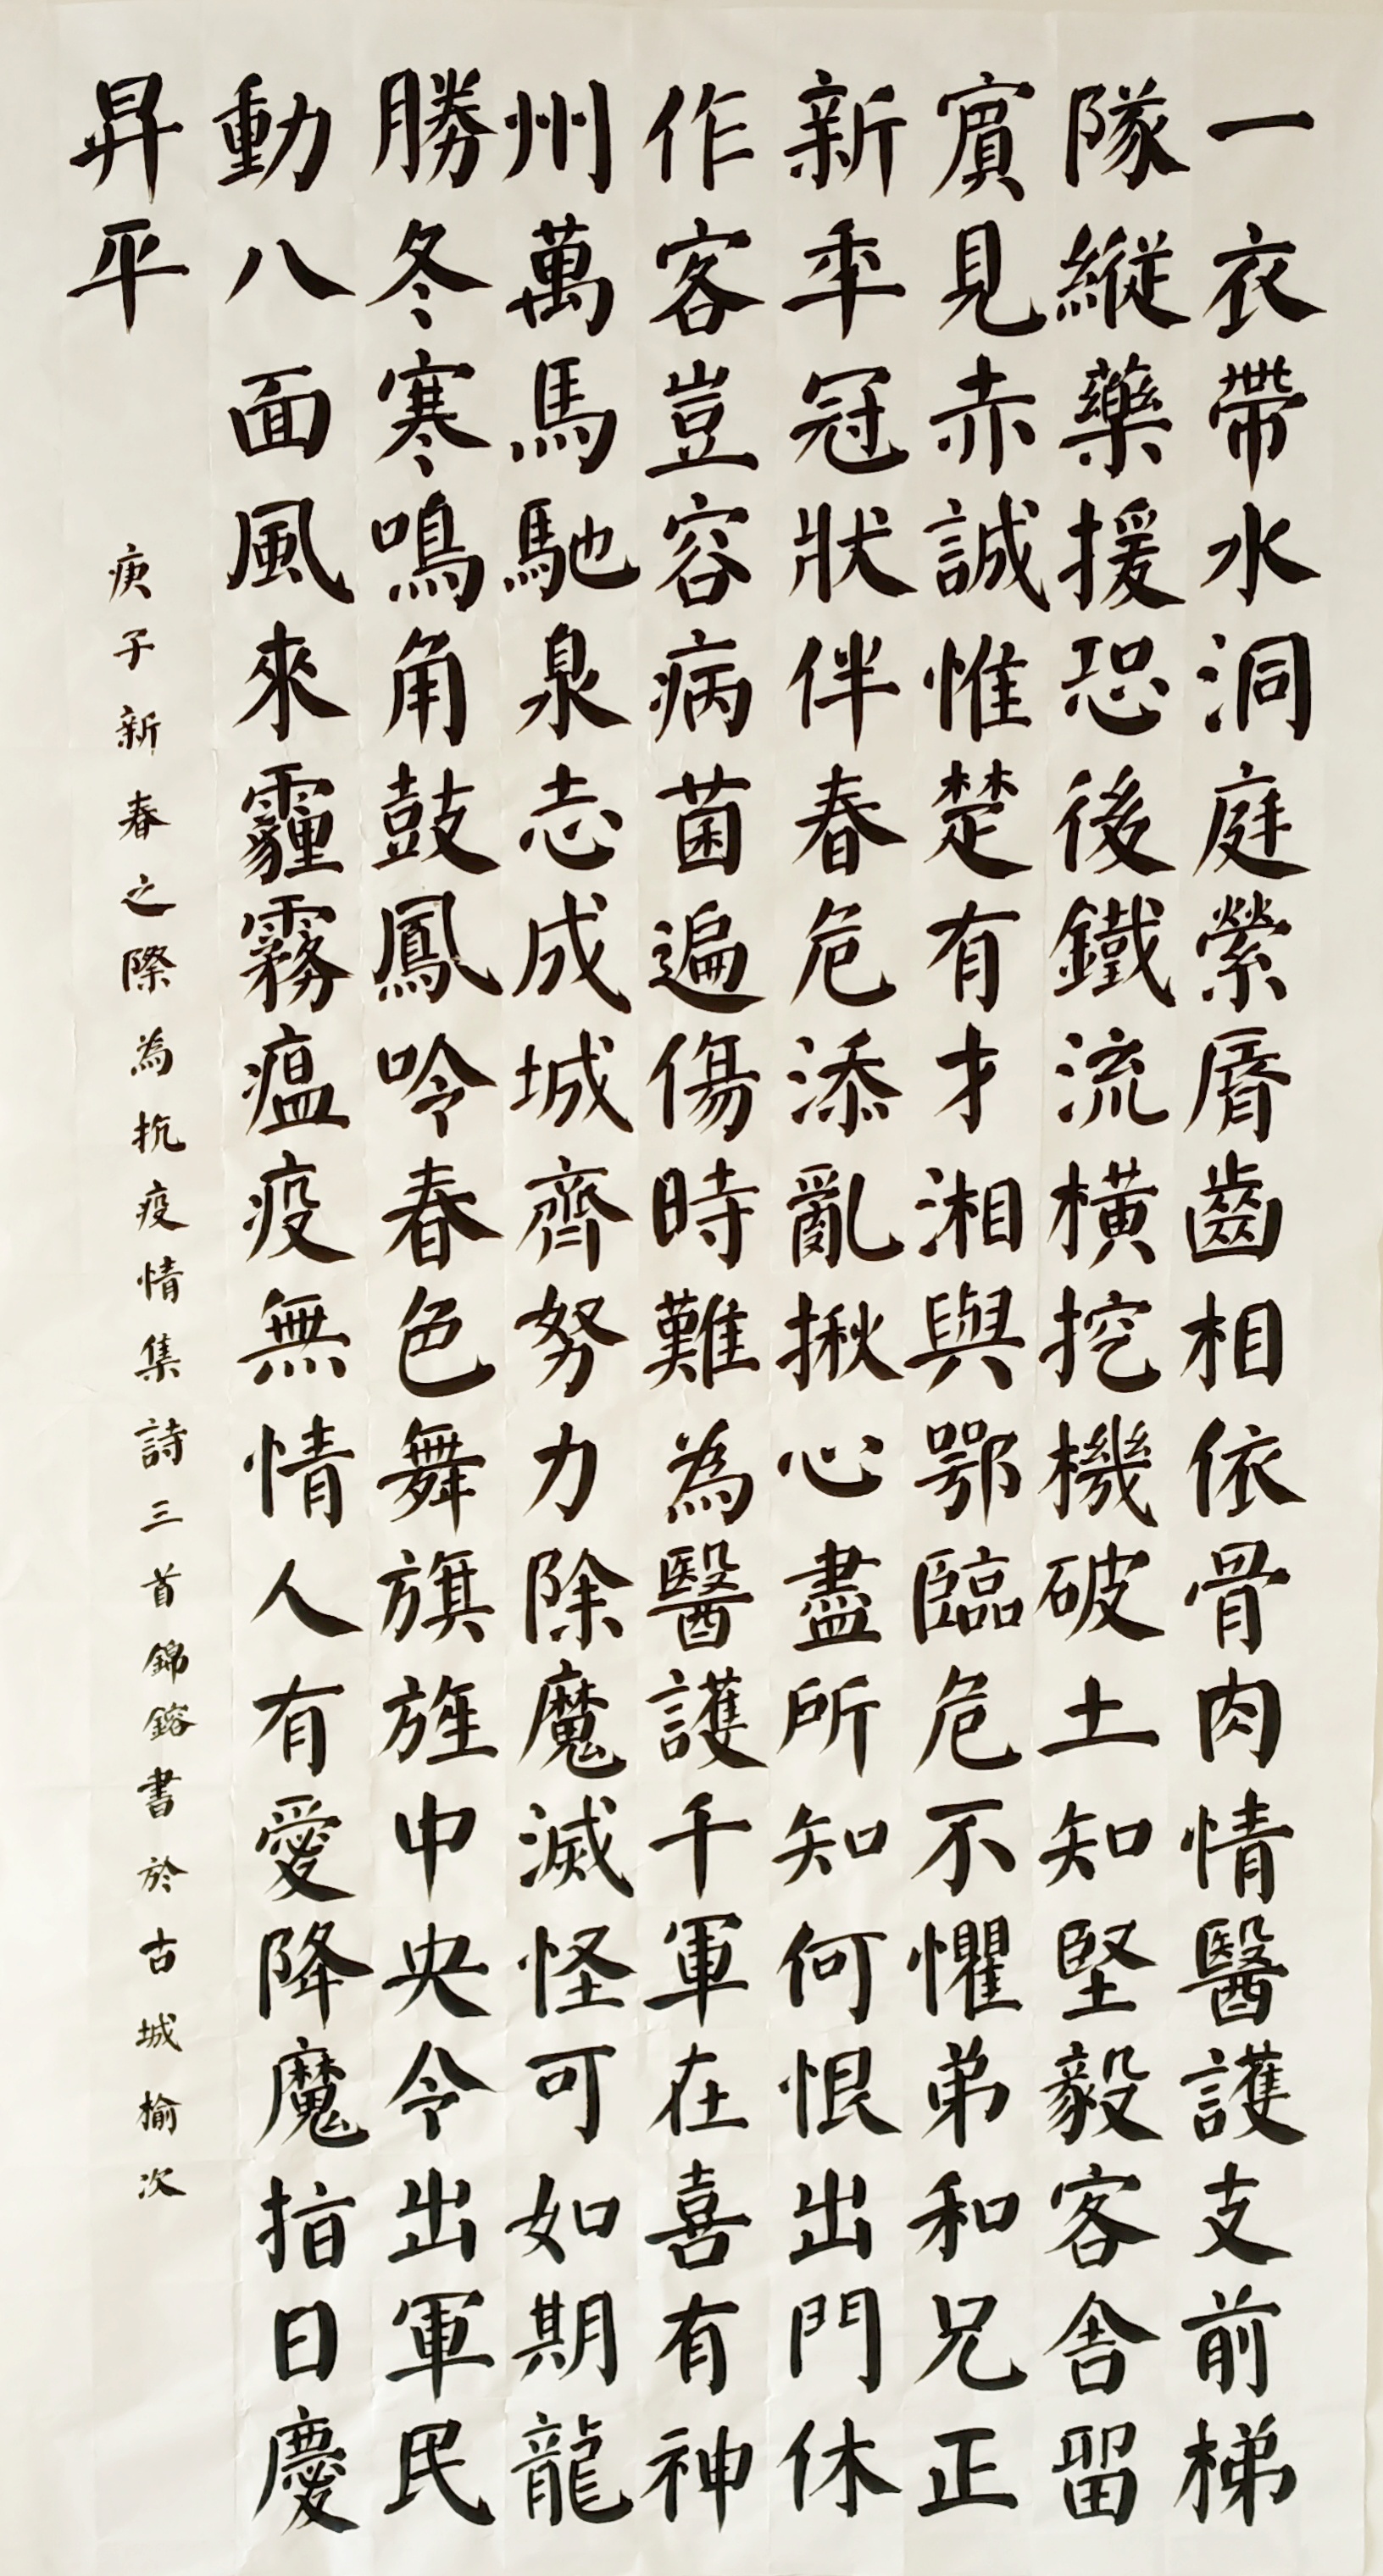 一衣帶水洞庭縈脣齒相依骨肉情醫護支前梯
隊縱藥援恐後鐵流橫挖機破土知堅毅客舍留
賓見赤誠惟楚有才湘與鄂臨危不懼弟和兄正
新年冠狀伴春危添亂揪心盡所知何恨出門休
作客豈容病菌遍傷時難為醫護千軍在喜有神
州萬馬馳泉志成城齊努力除魔滅怪可如期龍
勝冬寒鳴角鼓鳳吟春色舞旗旌中央令出軍民
動八面風來霾霧瘟疫無情人有愛降魔指日慶
昇平
庚子新春之際為抗疫情集詩三首錦鎔書於古城榆次